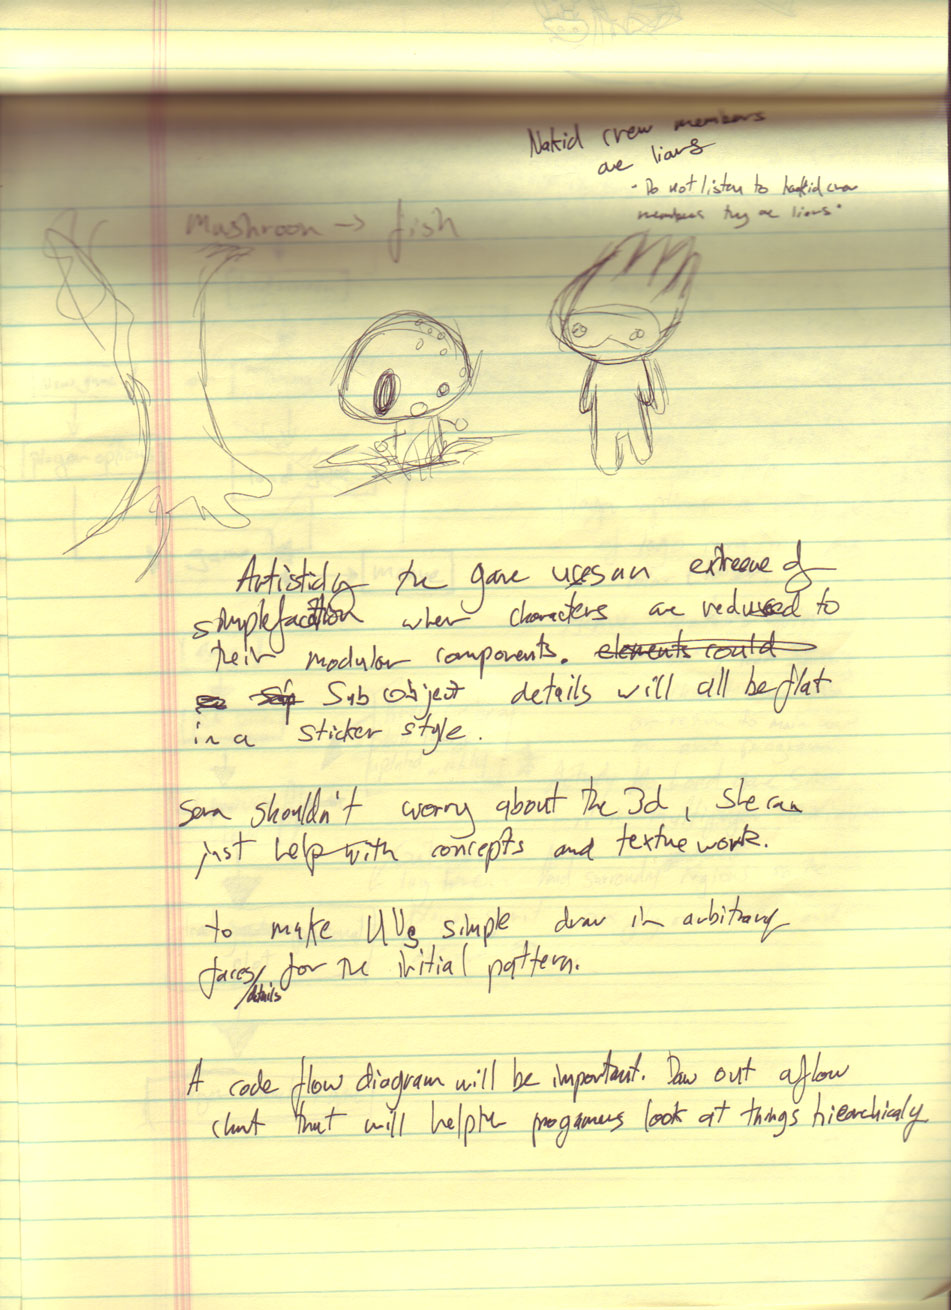 Nakid crew members
are liars
- Do not listen to nakid crew
members they are liars"
Mushroon -> fish
Artisticly the game uses an extreme of
simplefacation wher characters are redused to
their modular components. elements could
Sub object details will all be flat
in a sticker style.
Sera shouldn't worry about the 3d, she can
just help with concepts and texture work.
to make UVs simple draw in arbitrary
faces/details for the initial pattern.
A code flow diagram will be important. Draw out a flow
chart that will help the progamers look at things hierarchicaly